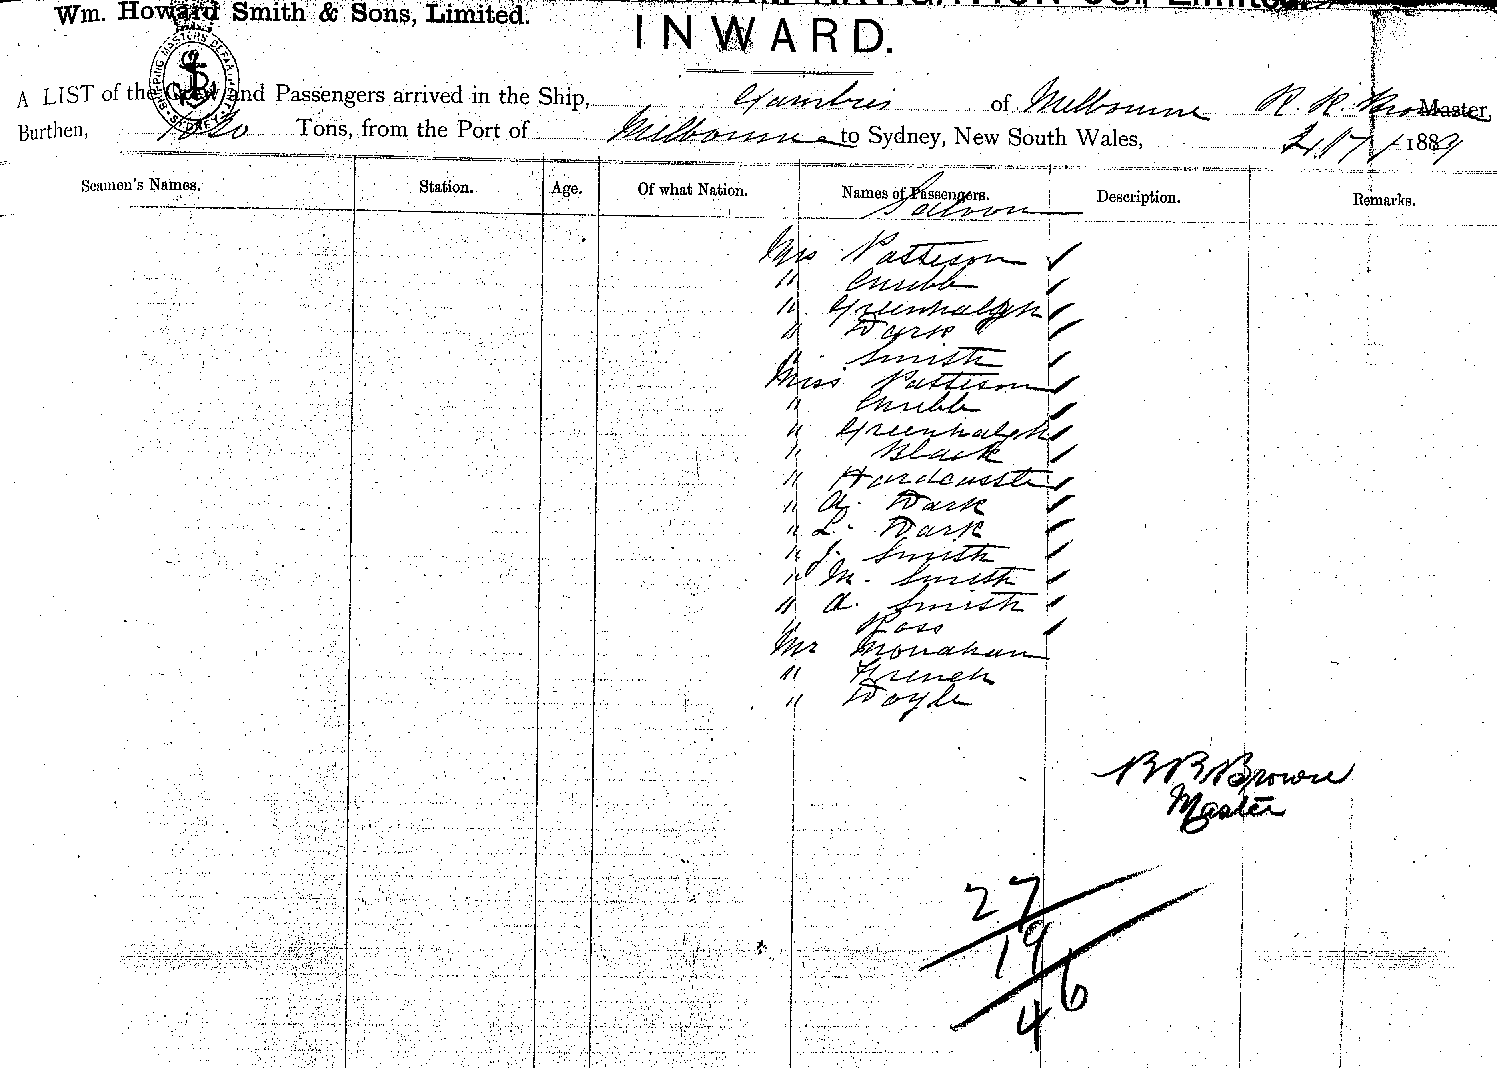 Wm. Howard Smith & Sons, Limited.
INWARD.
A LIST of the Crew and Passengers arrived in the Ship, Gambier of Melbourne R. R. Brown Master,
Burthen, Tons, from the Port of Melbourne to Sydney, New South Wales, 1889
Seamen's Names. Station. Age. Of what Nation. Names of Passengers. Description. Remarks.
Saloon
Mrs Pattison
" Chubb
" Greenhalgh
" Dark
" Smith
Miss Pattison
" Chubb
" Greenhalgh
" Black
" Hardcastle
" A. Dark
" L. Dark
" J. Smith
" M. Smith
" A. Smith
" Ross
Mr Monahan
" French
" Doyle
R R Brown
Master
27
19
46